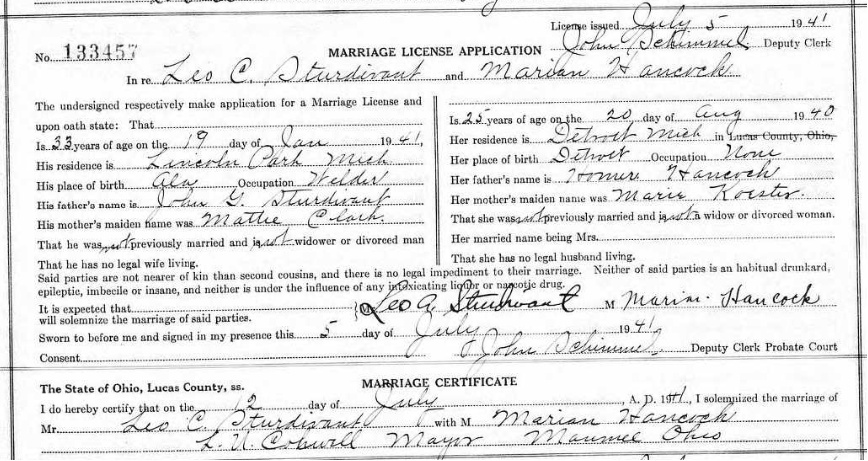 License issued July 5 1941
No. 133457 MARRIAGE LICENSE APPLICATION John Schimmel Deputy Clerk
In re Leo C. Sturdivant and Marian Hancock
The undersigned respectively make application for a Marriage License and
upon oath state: That
Is 33 years of age on the 19 day of Jan 1941,
His residence is Lincoln Park Mich
His place of birth Ala Occupation Welder
His father's name is John G. Sturdivant
His mother's maiden name was Mattie Clark.
That he was not previously married and is not widower or divorced man
That he has no legal wife living.
Is 25 years of age on the 20 day of Aug 1940
Her residence is Detroit Mich in Lucas County, Ohio,
Her place of birth Detroit Occupation None
Her father's name is Homer Hancock
Her mother's maiden name was Marie Koester.
That she was not previously married and is not a widow or divorced woman.
Her married name being Mrs.
That she has no legal husband living.
Said parties are not nearer of kin than second cousins, and there is no legal impediment to their marriage. Neither of said parties is an habitual drunkard,
epileptic, imbecile or insane, and neither is under the influence of any intoxicating liquor or narcotic drug.
It is expected that M Leo C. Sturdivant M Marian Hancock
will solemnize the marriage of said parties.
Sworn to before me and signed in my presence this 5 day of July 1941
Consent John Schimmel Deputy Clerk Probate Court
The State of Ohio, Lucas County, ss. MARRIAGE CERTIFICATE
I do hereby certify that on the 12 day of July, A. D. 1941, I solemnized the marriage of
Mr. Leo C. Sturdivant with M Marian Hancock
Mayor Maumee Ohio